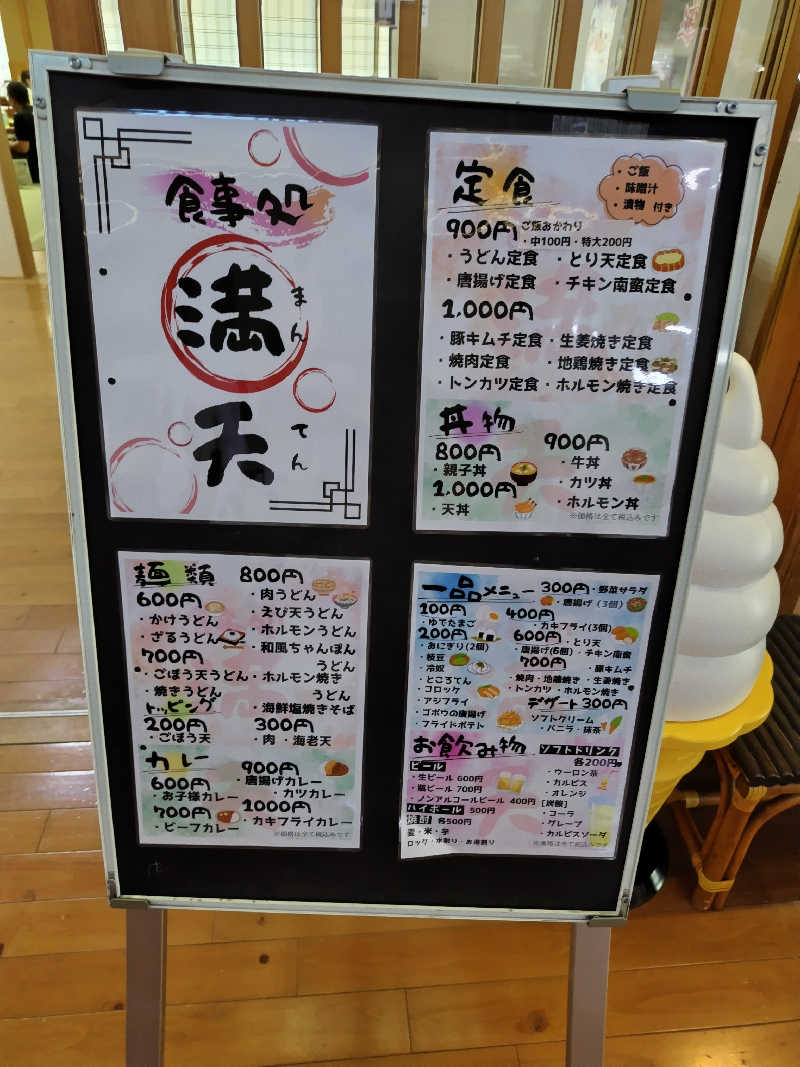 食事処
満天
まん
てん
定食
・ご飯
・味噌汁
・漬物 付き
900円 ご飯おかわり
・中100円・特大200円
・うどん定食 ・とり天定食
・唐揚げ定食 ・チキン南蛮定食
1,000円
・豚キムチ定食・生姜焼き定食
・焼肉定食 ・地鶏焼き定食
・トンカツ定食・ホルモン焼き定食
丼物
800円
・親子丼
1,000円
・天丼
900円
・牛丼
・カツ丼
・ホルモン丼
※価格は全て税込みです
麺類
600円
・かけうどん
・ざるうどん
700円
・ごぼう天うどん
・焼きうどん
800円
・肉うどん
・えび天うどん
・ホルモンうどん
・和風ちゃんぽん
うどん
・ホルモン焼き
うどん
・海鮮塩焼きそば
トッピング
200円
・ごぼう天
300円
・肉 ・海老天
カレー
600円
・お子様カレー
700円
・ビーフカレー
900円
・唐揚げカレー
・カツカレー
1000円
・カキフライカレー
※価格は全て税込みです
一品メニュー
100円
・ゆでたまご
200円
・おにぎり(2個)
・枝豆
・冷奴
・ところてん
・コロッケ
・アジフライ
・ゴボウの唐揚げ
・フライドポテト
300円・野菜サラダ
・唐揚げ(3個)
400円
・カキフライ(3個)
600円・とり天
・唐揚げ(6個)・チキン南蛮
700円
・豚キムチ
・焼肉・地鶏焼き・生姜焼き
・トンカツ・ホルモン焼き
デザート300円
ソフトクリーム
・バニラ・抹茶
お飲み物
ビール
・生ビール 600円
・瓶ビール 700円
・ノンアルコールビール 400円
ハイボール 500円
焼酎 各500円
麦・米・芋
ロック・水割り・お湯割り
ソフトドリンク
各200円
・ウーロン茶
・カルピス
・オレンジ
[炭酸]
・コーラ
・グレープ
・カルピスソーダ
※価格は全て税込みです